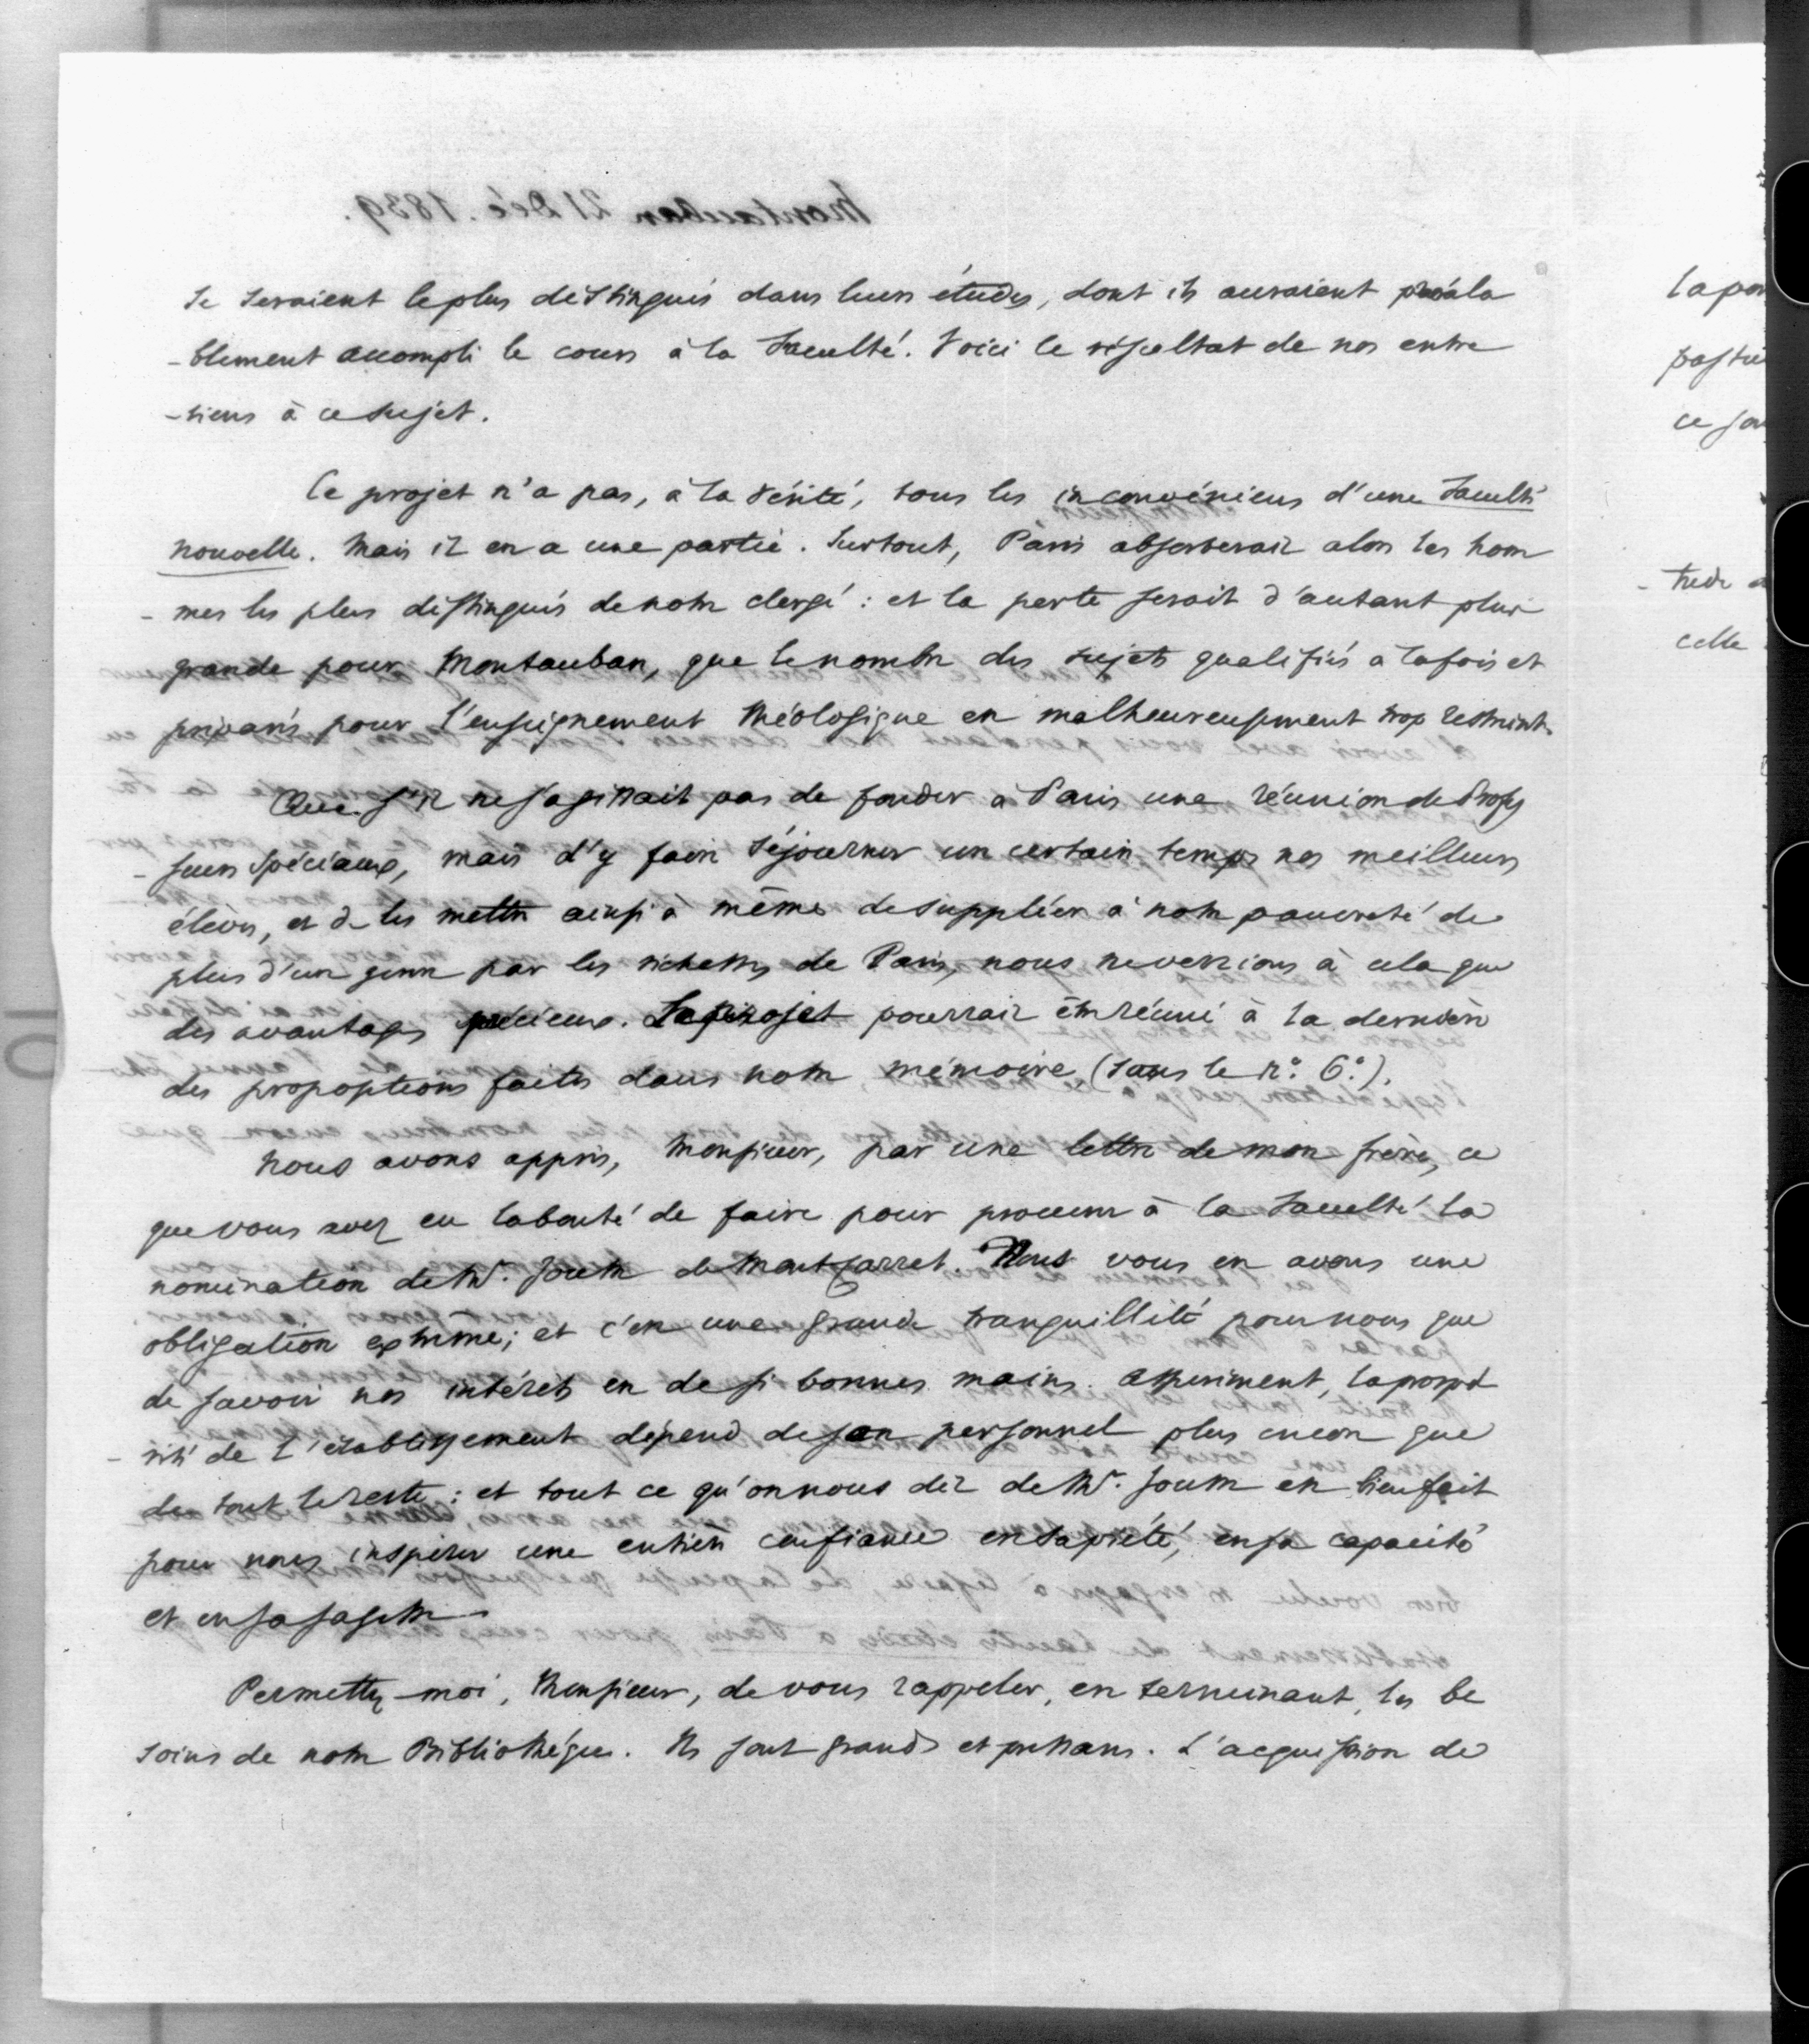 se seraient le plus distingués dans leurs études, dont ils auraient préala
-blement accompli le cours à la Faculté. Voici le résultat de nos entre
-tiens à ce sujet.
Ce projet n'a pas, à la vérité, tous les inconvéniens d'une Faculté
nouvelle. Mais il en a une partie. Surtout, Paris absorberait alors les hom
-mes les plus distingués de notre clergé : et la perte serait d'autant plus
grande pour Montauban, que le nombre des sujets qualifiés à la fois et
préparés pour l'enseignement théologique est malheureusement trop restreint.
Que s'il ne s'agissait pas de fonder à Paris une réunion de Profes
-seurs spéciaux, mais d'y faire séjourner un certain temps nos meilleurs
élèves, et de les mettre ainsi à même de suppléer à notre pauvreté de
plus d'un genre par les richesses de Paris, nous ne verrions à cela que
des avantages précieux. Le projet pourrait être réuni à la dernière
des propositions faites dans notre mémoire (sous le n° 6°).
Nous avons appris, Monsieur, par une lettre de mon frère, ce
que vous avez eu la bonté de faire pour procurer à la Faculté la
nomination de Mr. de Montcarret. Nous vous en avons une
obligation extrême ; et c'est une grande tranquillité pour nous que
de savoir nos intérêts en de si bonnes mains. Assurément, la prospé
-rité de l'établissement dépend de son personnel plus encore que
de tout le reste : et tout ce qu'on nous dit de Mr. est bien fait
pour nous inspirer une entière confiance en sa piété, en sa capacité
et en sa sagesse.
Permettez-moi, Monsieur, de vous rappeler, en terminant, les be
soins de notre Bibliothèque. Ils sont grands et pressans. L'acquisition de